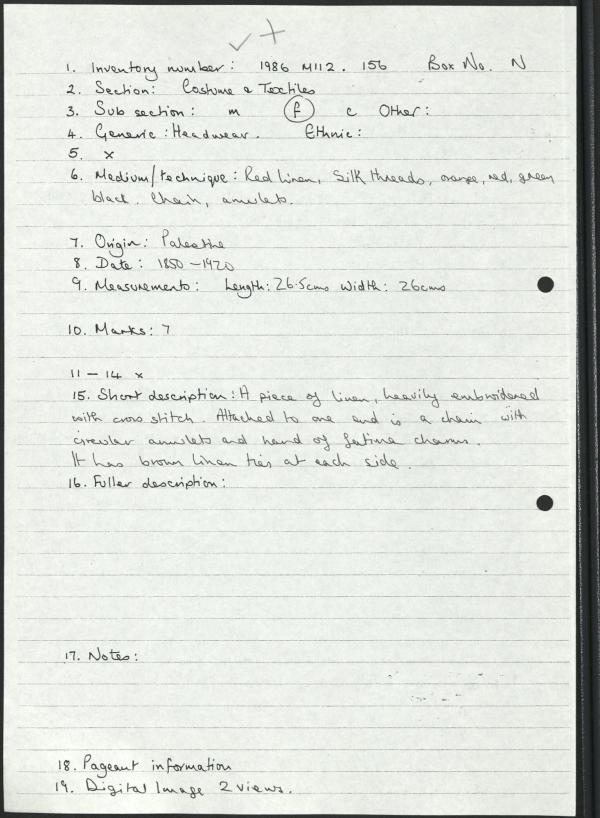 1. Inventory number: 1986 M112. 156 Box No. N
2. Section: Costume & Textiles
3. Sub section: m f c Other:
4. Generic: Headwear. Ethnic:
5. x
6. Medium/technique: Red linen, Silk threads, orange, red, green
black. Chain, amulets.
7. Origin: Palestine
8. Date: 1850-1920
9. Measurements: Length: 26.5cms Width: 26cms
10. Marks: 7
11 - 14 x
15. Short description: A piece of linen, heavily embroidered
with cross stitch. Attached to one end is a chain with
circular amulets and hand of fatima charms.
It has brown linen ties at each side.
16. Fuller description:
17. Notes:
18. Pageant information
19. Digital Image 2 views.